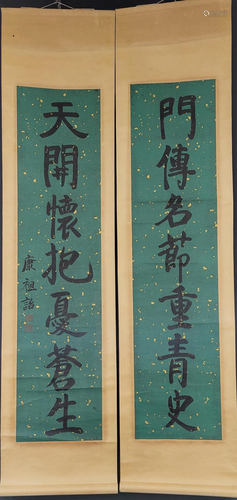 門傳名節重青史
天開懷抱憂蒼生
康祖詒